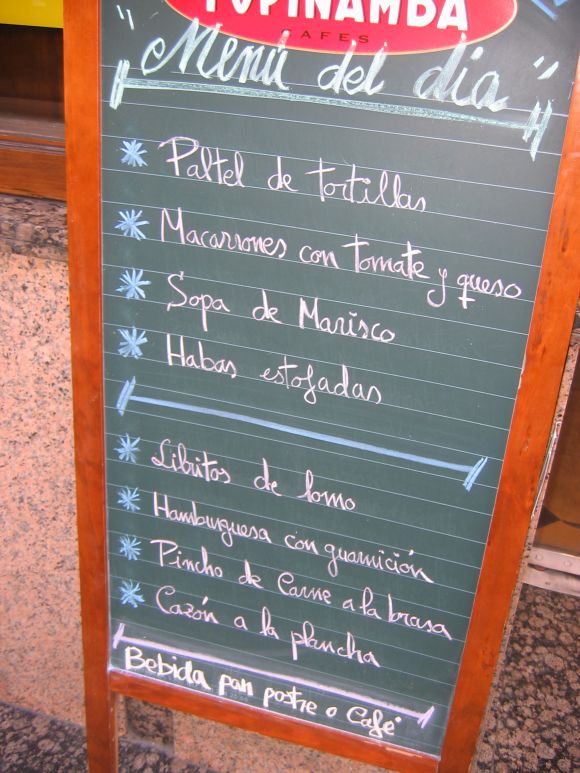 TUPINAMBA
CAFES
"Menú del dia"
Paltel de tortillas
Macarrones con tomate y queso
Sopa de Marisco
Habas estofadas
Libritos de lomo
Hamburguesa con guarnición
Pincho de Carne a la brasa
Cazón a la plancha
Bebida pan postre o Café